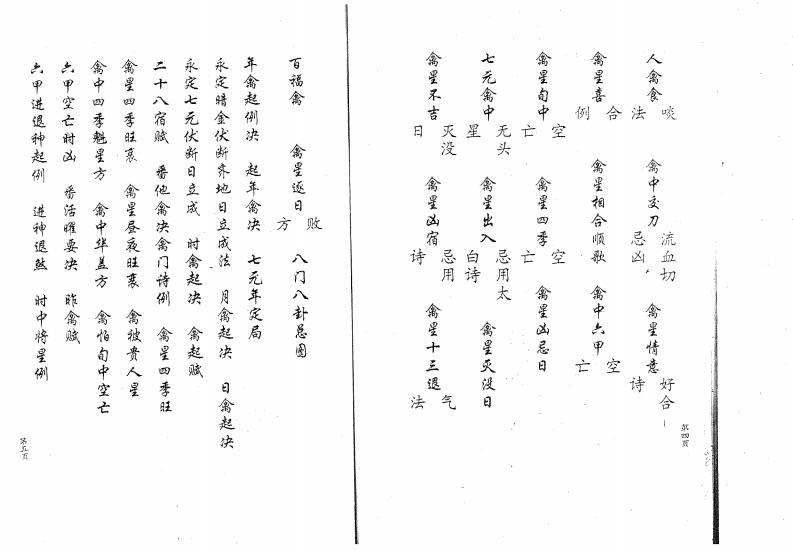 人禽食啖法 禽中交刀流血切忌凶, 禽星情意好合诗
禽星喜合例 禽星相合顺歌 禽中六甲空亡
禽星旬中空亡 禽星四季空亡 禽星凶忌日
七元禽中无头星 禽星出入忌用太白诗 禽星灭没日
禽星不吉灭没日 禽星凶宿忌用诗 禽星十三退气法
第四页
百福禽 禽星逐日败方 八门八卦总图
年禽起例决 起年禽决 七元年定局
永定暗金伏断地日立成法 月禽起决 日禽起决
永定七元伏断日立成 时禽起决 禽起赋
二十八宿赋 番他禽决禽门诗例 禽星四季旺
禽星四季旺衰 禽星昼夜旺衰 禽被贵人星
禽中四季魁星方 禽中华盖方 禽怕旬中空亡
六甲空亡时凶 番活曜要决 昨禽赋
六甲进退神起例 进神退煞 时中将星例
第五页